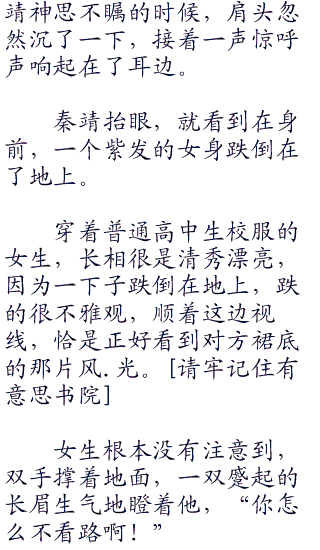 靖神思不瞩的时候，肩头忽
然沉了一下，接着一声惊呼
声响起在了耳边。
秦靖抬眼，就看到在身
前，一个紫发的女身跌倒在
了地上。
穿着普通高中生校服的
女生，长相很是清秀漂亮，
因为一下子跌倒在地上，跌
的很不雅观，顺着这边视
线，恰是正好看到对方裙底
的那片风.光。[请牢记住有
意思书院]
女生根本没有注意到，
双手撑着地面，一双蹙起的
长眉生气地瞪着他，“你怎
么不看路啊！”